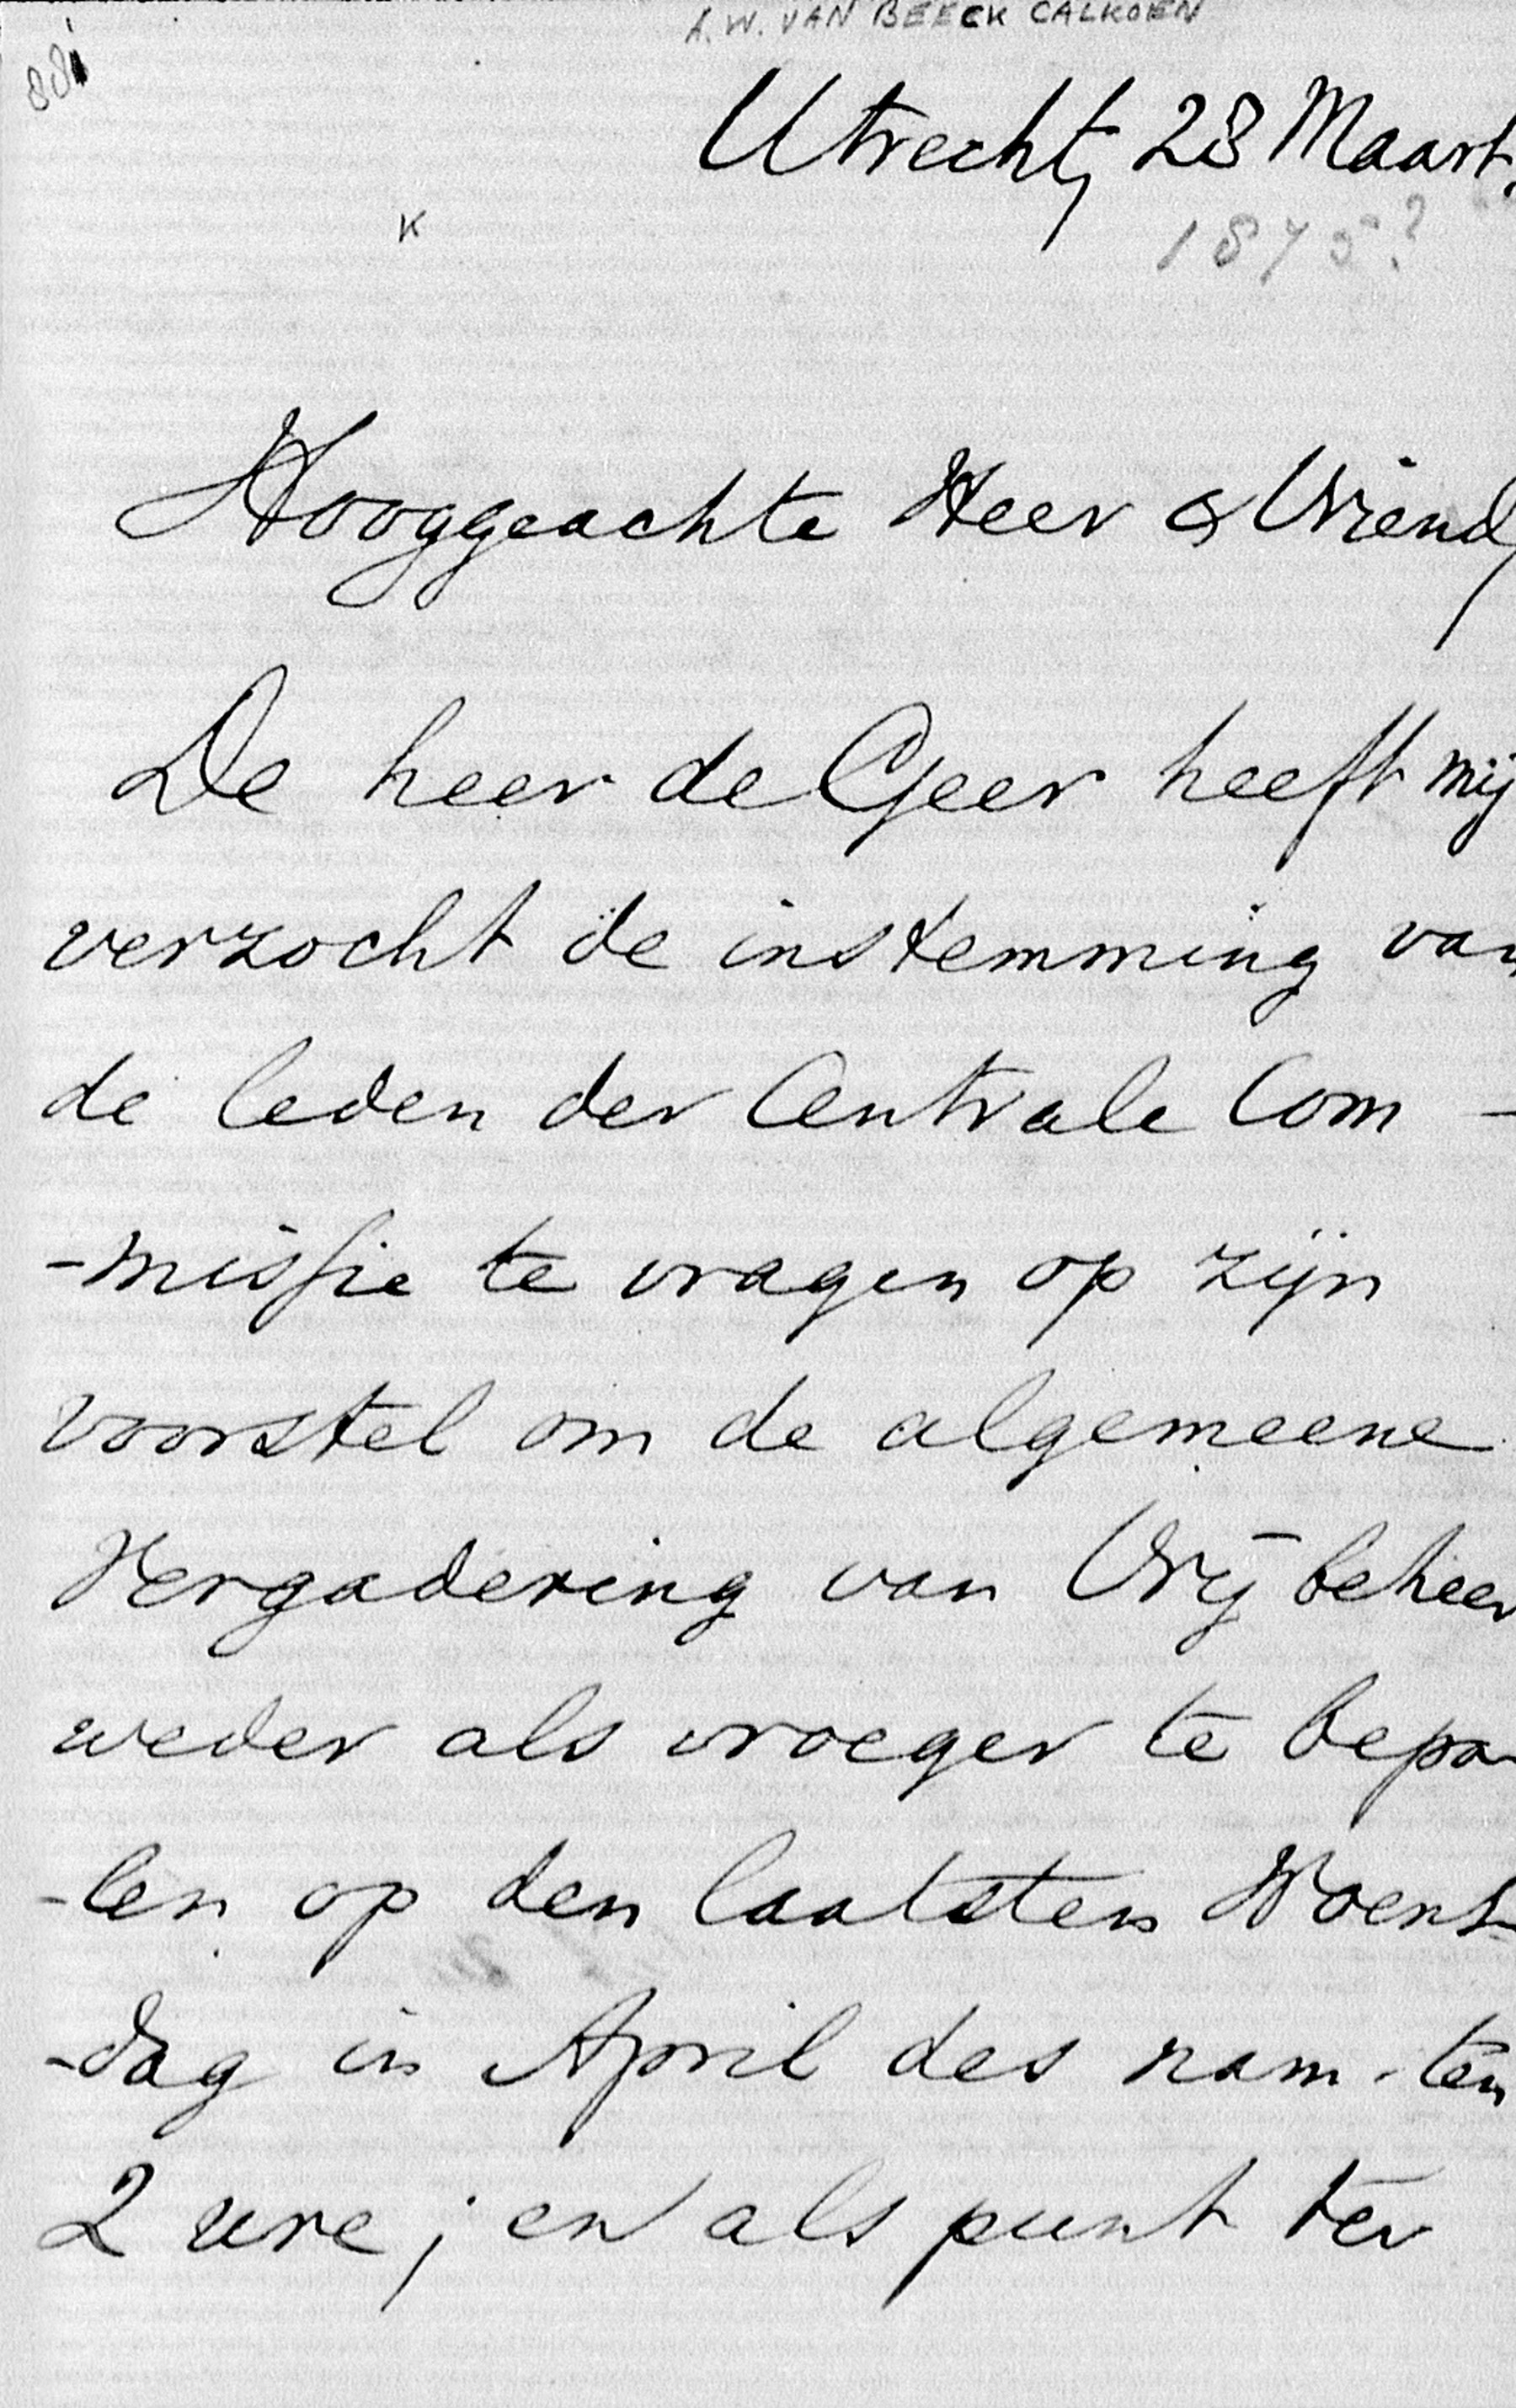 A. W. VAN BEECK CALKOEN
Utrecht, 28 Maart.
K
1875?
Hooggeachte Heer & Vriend,
De heer de Geer heeft mij
verzocht de instemming van
de leden der Centrale Com-
-missie te vragen op zijn
voorstel om de algemeene
Vergadering van Vrij beheer
weder als vroeger te bepa-
-len op den laatsten Woens-
-dag in April des nam. ten
2 ure; en als punt ter